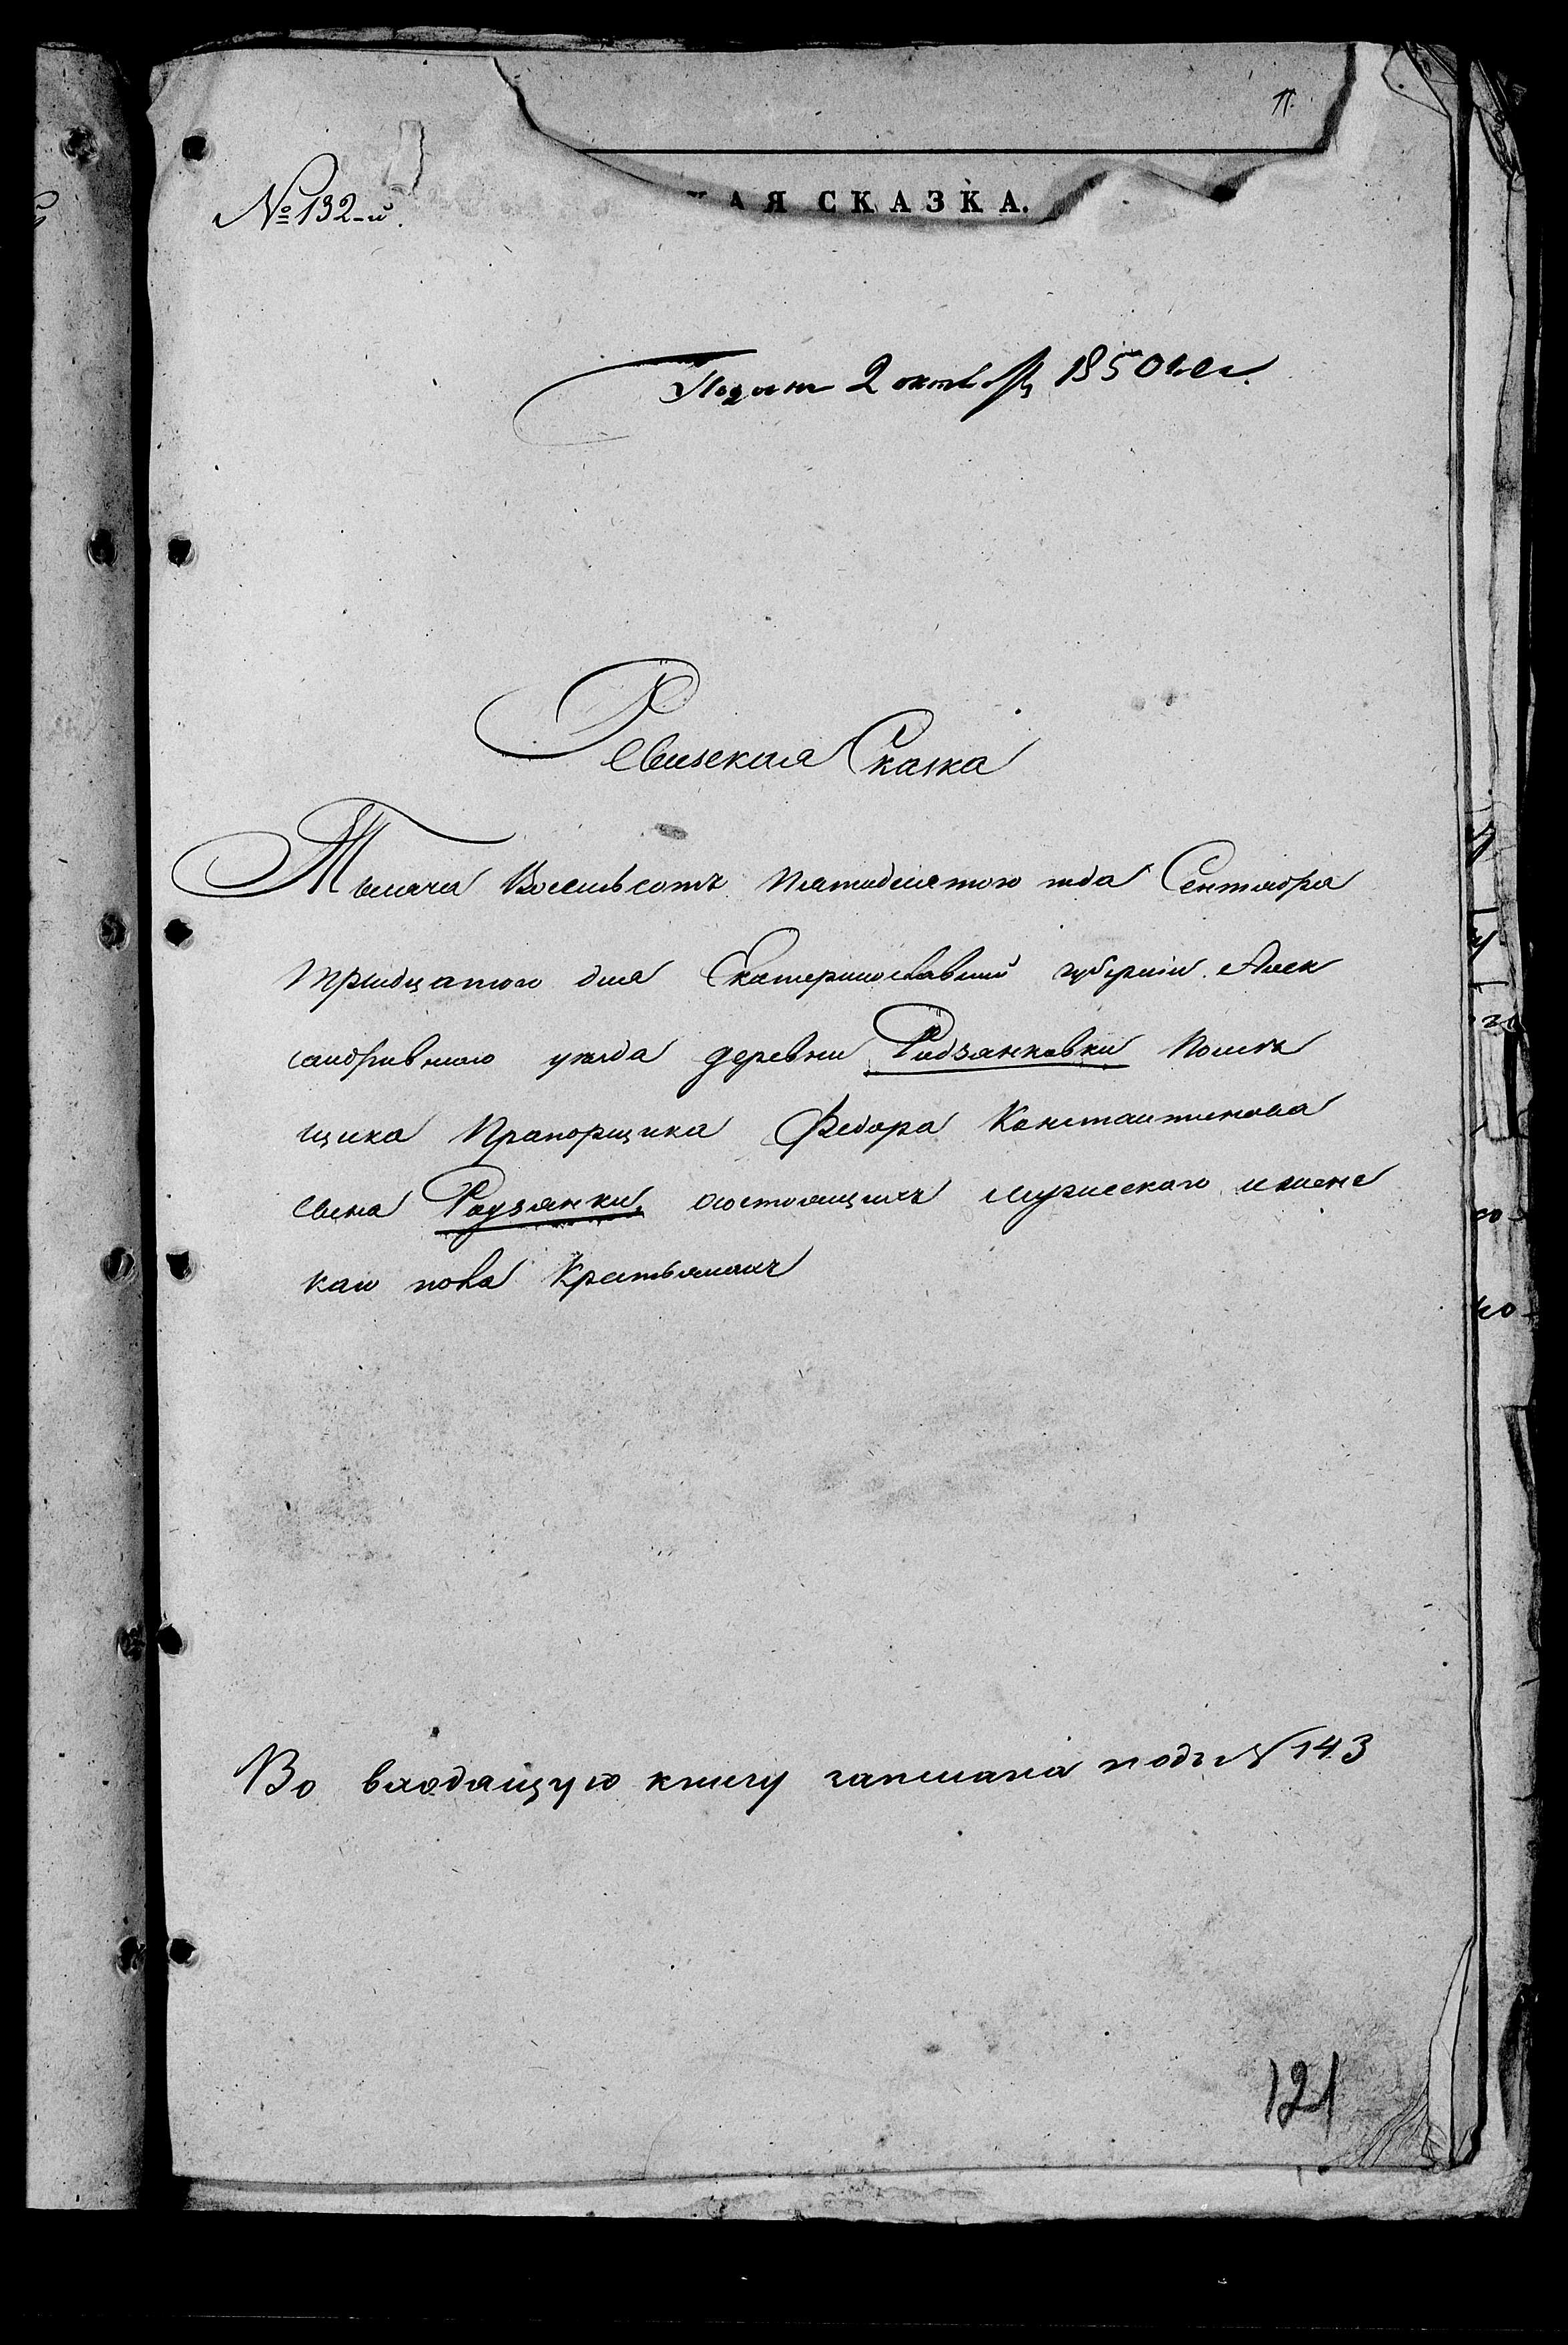 № 132-й.
КАЯ СКАЗКА.
Подана 2 октября 1850 года.
Ревизская Сказка
Тысяча Восемьсотъ Пятидесятого года Сентября
тридцатого дня Екатеринославской губерніи Алек
сандровскаго уезда деревни Родзянковки Помѣ
щика Прапорщика Федора Константинова
сына Родзянки, состоящихъ мужескаго и женс
каго пола Крестьянахъ
Во входящую книгу записана подъ № 143
121